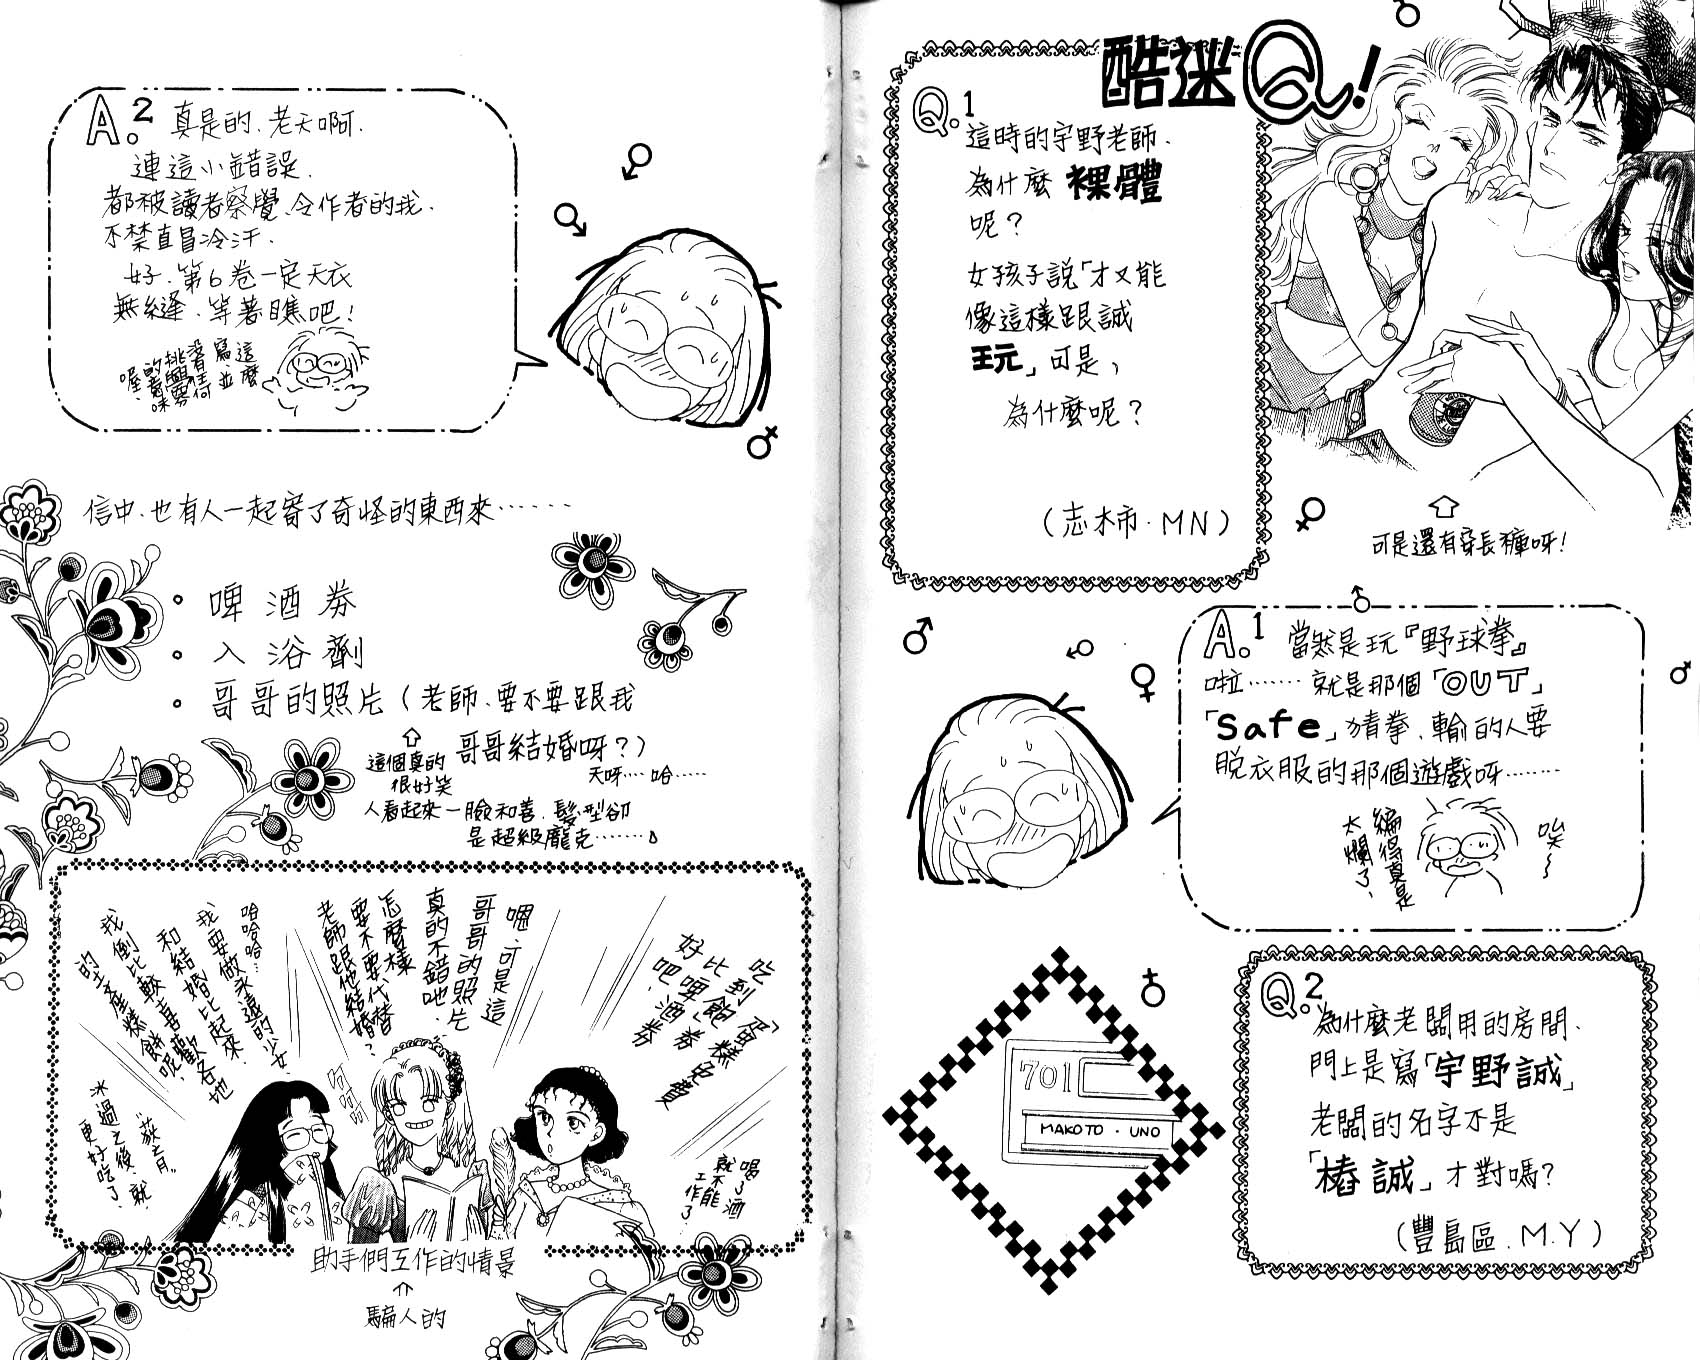 酷迷Q!
Q.1
這時的宇野老師.
為什麼 裸體
呢？
女孩子說「才又能
像這樣跟誠
玩」可是，
為什麼呢？
(志木市.MN)
可是還有穿長褲呀!
A.1 當然是玩『野球拳』
啦…… 就是那個「OUT」
「Safe」猜拳、輸的人要
脫衣服的那個遊戲呀……
唉~
編得真是
太爛了、
Q.2
為什麼老闆用的房間、
門上是寫「宇野誠」
老闆的名字不是
「椿誠」才對嗎?
(豐島區.M.Y)
701
MAKOTO・UNO
A.2 真是的、老天啊.
連這小錯誤.
都被讀者察覺、令作者的我.
不禁直冒冷汗.
好、第6卷一定天衣
無縫、等著瞧吧!
這麼
寫、並
沒有任何
挑釁
的意味
喔、
信中、也有人一起寄了奇怪的東西來……
・啤酒券
・入浴劑
・哥哥的照片(老師、要不要跟我
哥哥結婚呀?)
這個真的
很好笑
天呀…. 哈……
人看起來一臉和善、髮型卻
是超級龐克……
吃到飽「蛋糕免費
比啤」券
好吧、酒券
喝了酒
就不能
工作了、
嗯、可是這
哥哥的照片
真的不錯吔、
怎麼樣
要不要代替
老師跟他結婚?
呵呵呵
哈哈哈…
我要做永遠的少女
和結婚比起來、
我倒比較喜歡各地
的土產糕餅呢、
冰過之後、就
更好吃了、
助手們工作的情景
騙人的